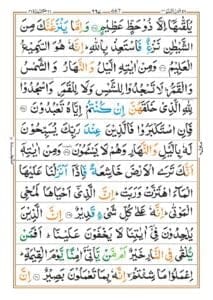 يُلَقّٰىهَاۤ اِلَّا ذُوْ حَظٍّ عَظِيْمٍ وَاِمَّا يَنْزَغَنَّكَ مِنَ
الشَّيْطٰنِ نَزْغٌ فَاسْتَعِذْ بِاللّٰهِ اِنَّهٗ هُوَ السَّمِيْعُ
الْعَلِيْمُ وَمِنْ اٰيٰتِهِ الَّيْلُ وَالنَّهَارُ وَالشَّمْسُ
وَالْقَمَرُ لَا تَسْجُدُوْا لِلشَّمْسِ وَلَا لِلْقَمَرِ وَاسْجُدُوْا
لِلّٰهِ الَّذِيْ خَلَقَهُنَّ اِنْ كُنْتُمْ اِيَّاهُ تَعْبُدُوْنَ
فَاِنِ اسْتَكْبَرُوْا فَالَّذِيْنَ عِنْدَ رَبِّكَ يُسَبِّحُوْنَ
لَهٗ بِالَّيْلِ وَالنَّهَارِ وَهُمْ لَا يَسْـَٔمُوْنَ وَمِنْ اٰيٰتِهٖۤ
اَنَّكَ تَرَى الْاَرْضَ خَاشِعَةً فَاِذَاۤ اَنْزَلْنَا عَلَيْهَا
الْمَآءَ اهْتَزَّتْ وَرَبَتْ اِنَّ الَّذِيْۤ اَحْيَاهَا لَمُحْيِ
الْمَوْتٰى اِنَّهٗ عَلٰى كُلِّ شَيْءٍ قَدِيْرٌ اِنَّ الَّذِيْنَ
يُلْحِدُوْنَ فِيْۤ اٰيٰتِنَا لَا يَخْفَوْنَ عَلَيْنَا اَفَمَنْ
يُّلْقٰى فِي النَّارِ خَيْرٌ اَمْ مَّنْ يَّاْتِيْۤ اٰمِنًا يَّوْمَ الْقِيٰمَةِ
اِعْمَلُوْا مَا شِئْتُمْ اِنَّهٗ بِمَا تَعْمَلُوْنَ بَصِيْرٌ اِنَّ